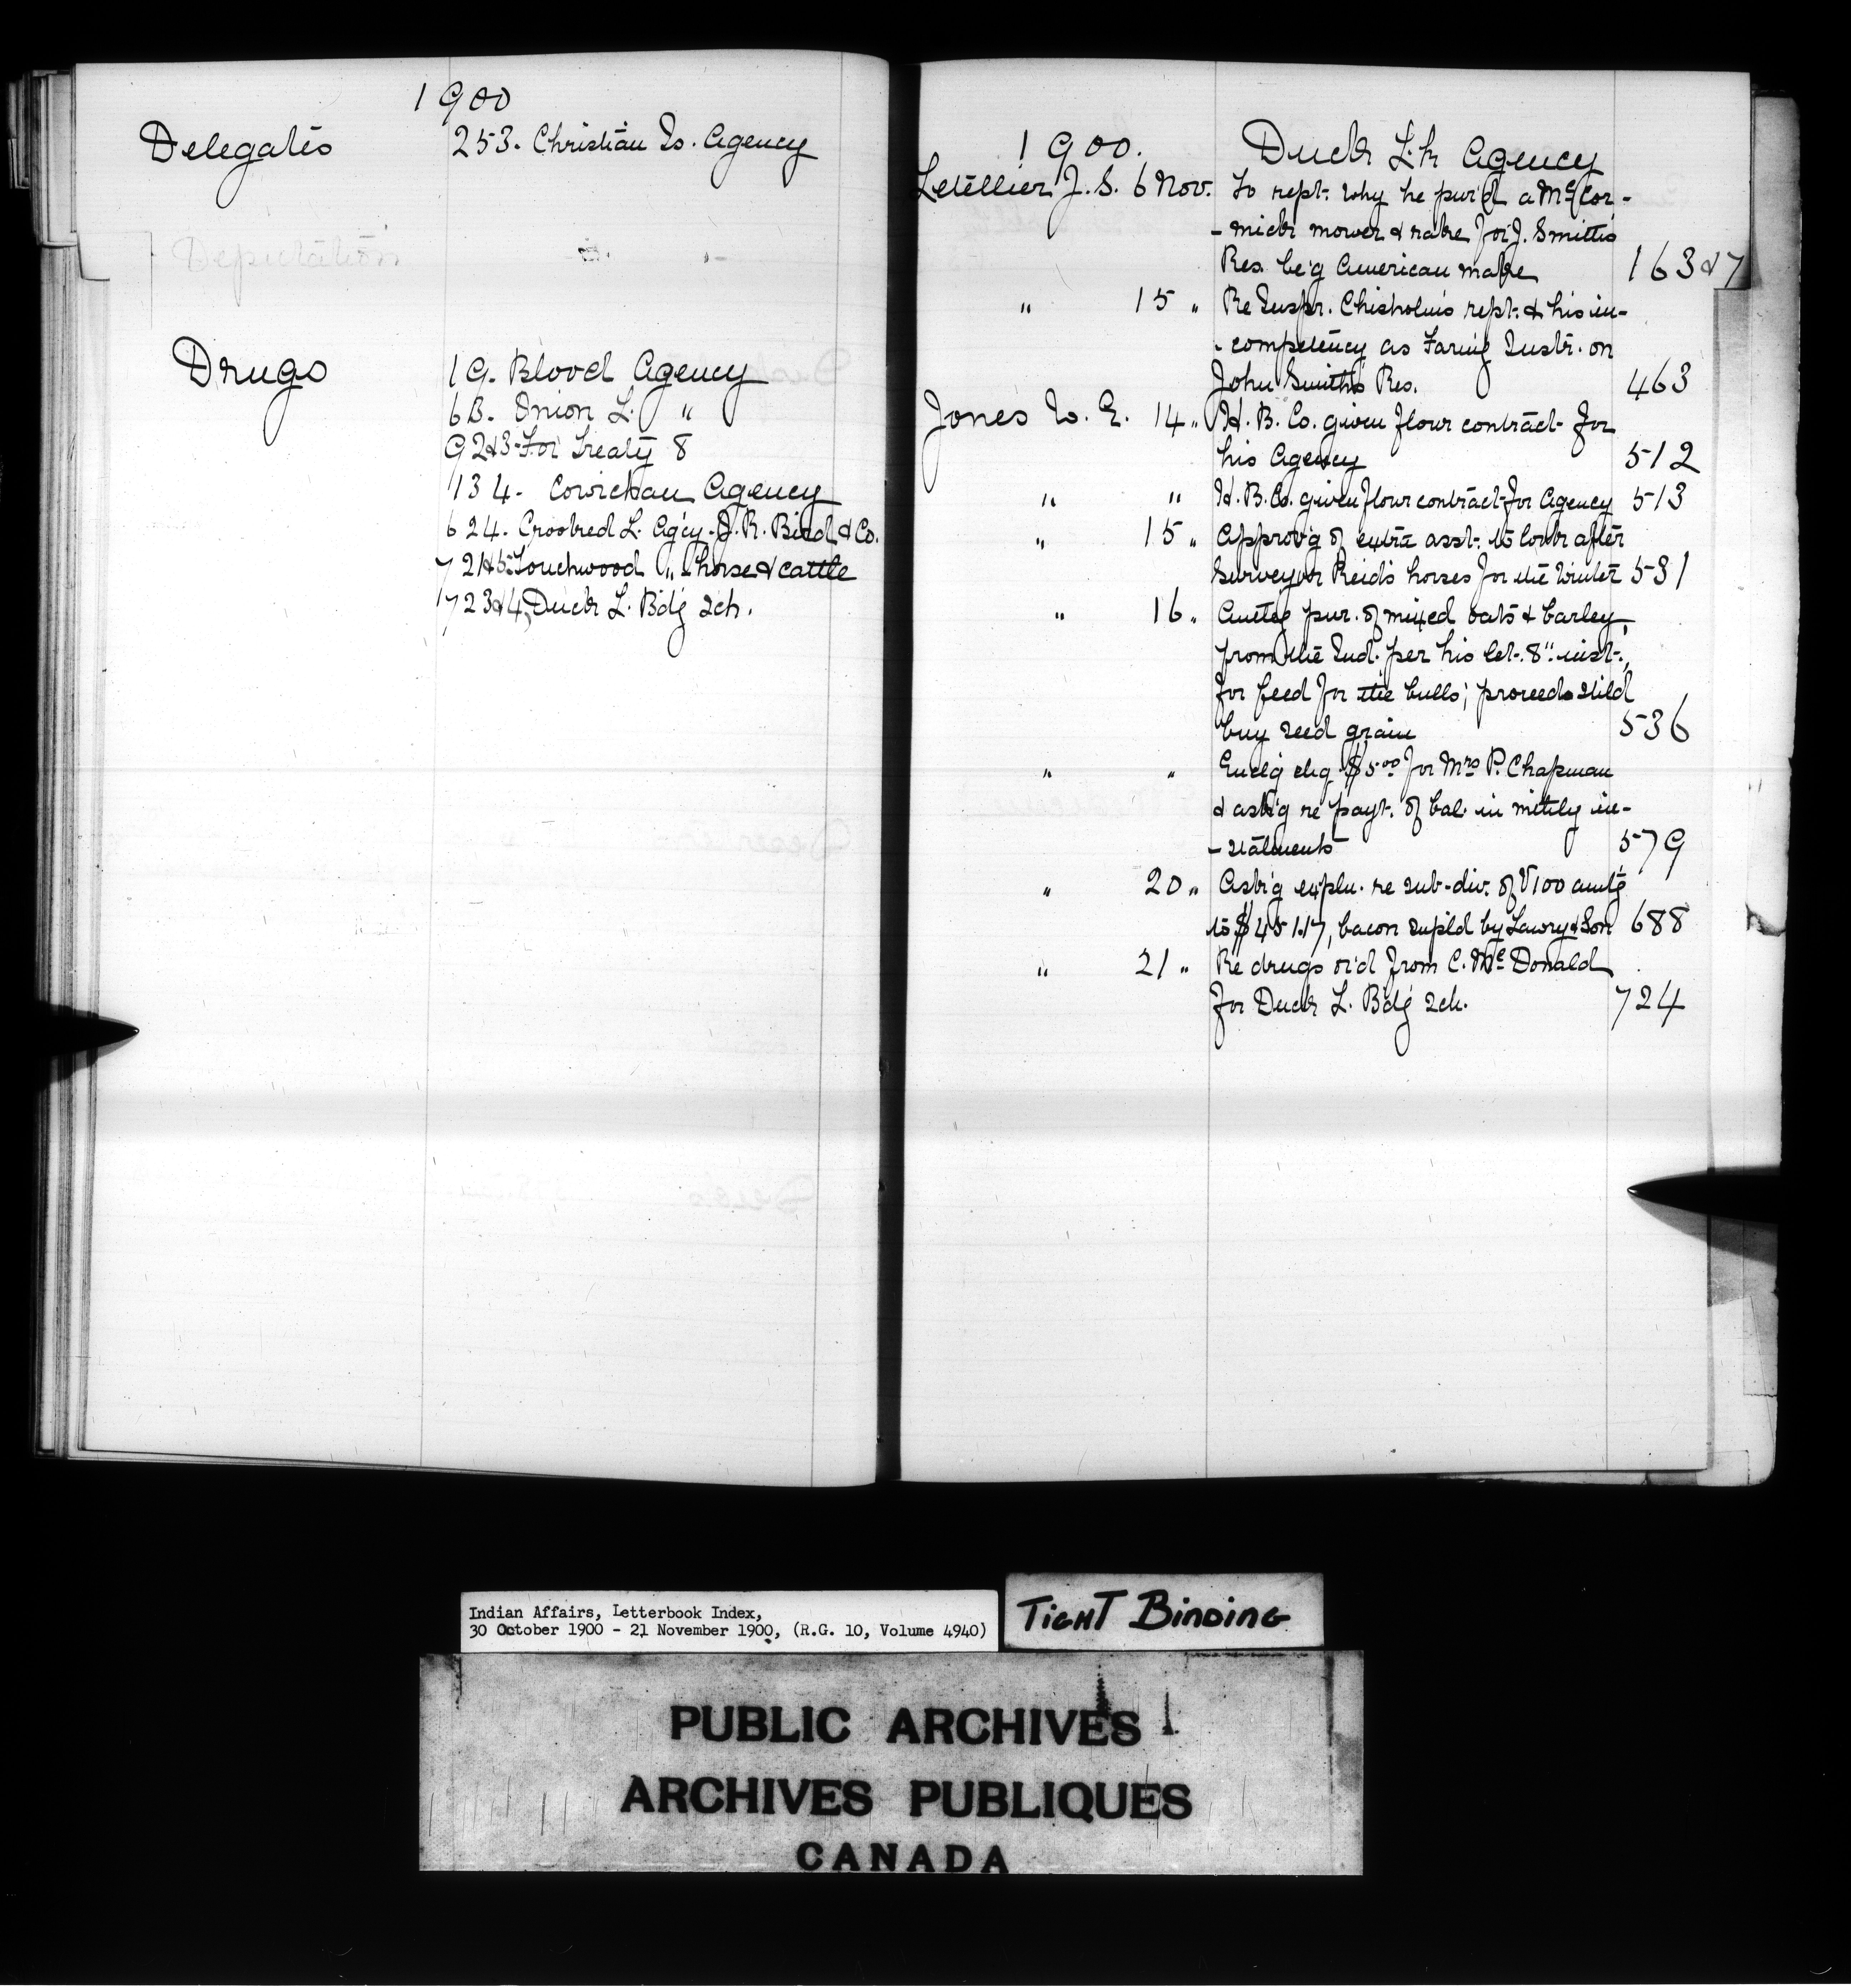 1900
Delegates 253. Christian Is. Agency
Deputation " "
Drugs 19. Blood Agency
68. Onion L. "
92&3-For Treaty 8
134. Cowichan Agency
624. Crooked L. Agcy. J. R. Bird & Co.
721&5-Touchwood " horse & cattle
723&4, Duck L. Bdg Sch.
1900. Duck Lk Agency
Letellier J. S. 6 Nov. To rept. why he pur'd a McCor-
-mick mower & rake for J. Smith's
Res. be'g American make 163&7
" 15 " Re Inspr. Chisholm's rept. & his in-
-competency as Farm'g Instr. on
John Smith's Res. 463
Jones W. E. 14 " H. B. Co. given flour contract for
his Agency 512
" " H. B. Co. given flour contract for Agency 513
" 15 " Approv'g of extra asst. to look after
Surveyor Reid's horses for the Winter 531
" 16 " pur. of mixed oats & barley,
from the Ind. per his let. 8" inst.,
for feed for the bulls; proceeds
buy seed grain 536
" " Encl'g chq $5.00 for Mrs P. Chapman
& ask'g re payt. of bal. in mthly in-
-stalments 579
" 20 " Ask'g expln. re sub-div. of V100 amtg
to $451.17, bacon supld by Lawry & Son 688
" 21 " Re drugs or'd from C. McDonald
for Duck L. Bdg Sch. 724
Indian Affairs, Letterbook Index,
30 October 1900 - 21 November 1900, (R.G. 10, Volume 4940)
TIGHT BINDING
PUBLIC ARCHIVES
ARCHIVES PUBLIQUES
CANADA